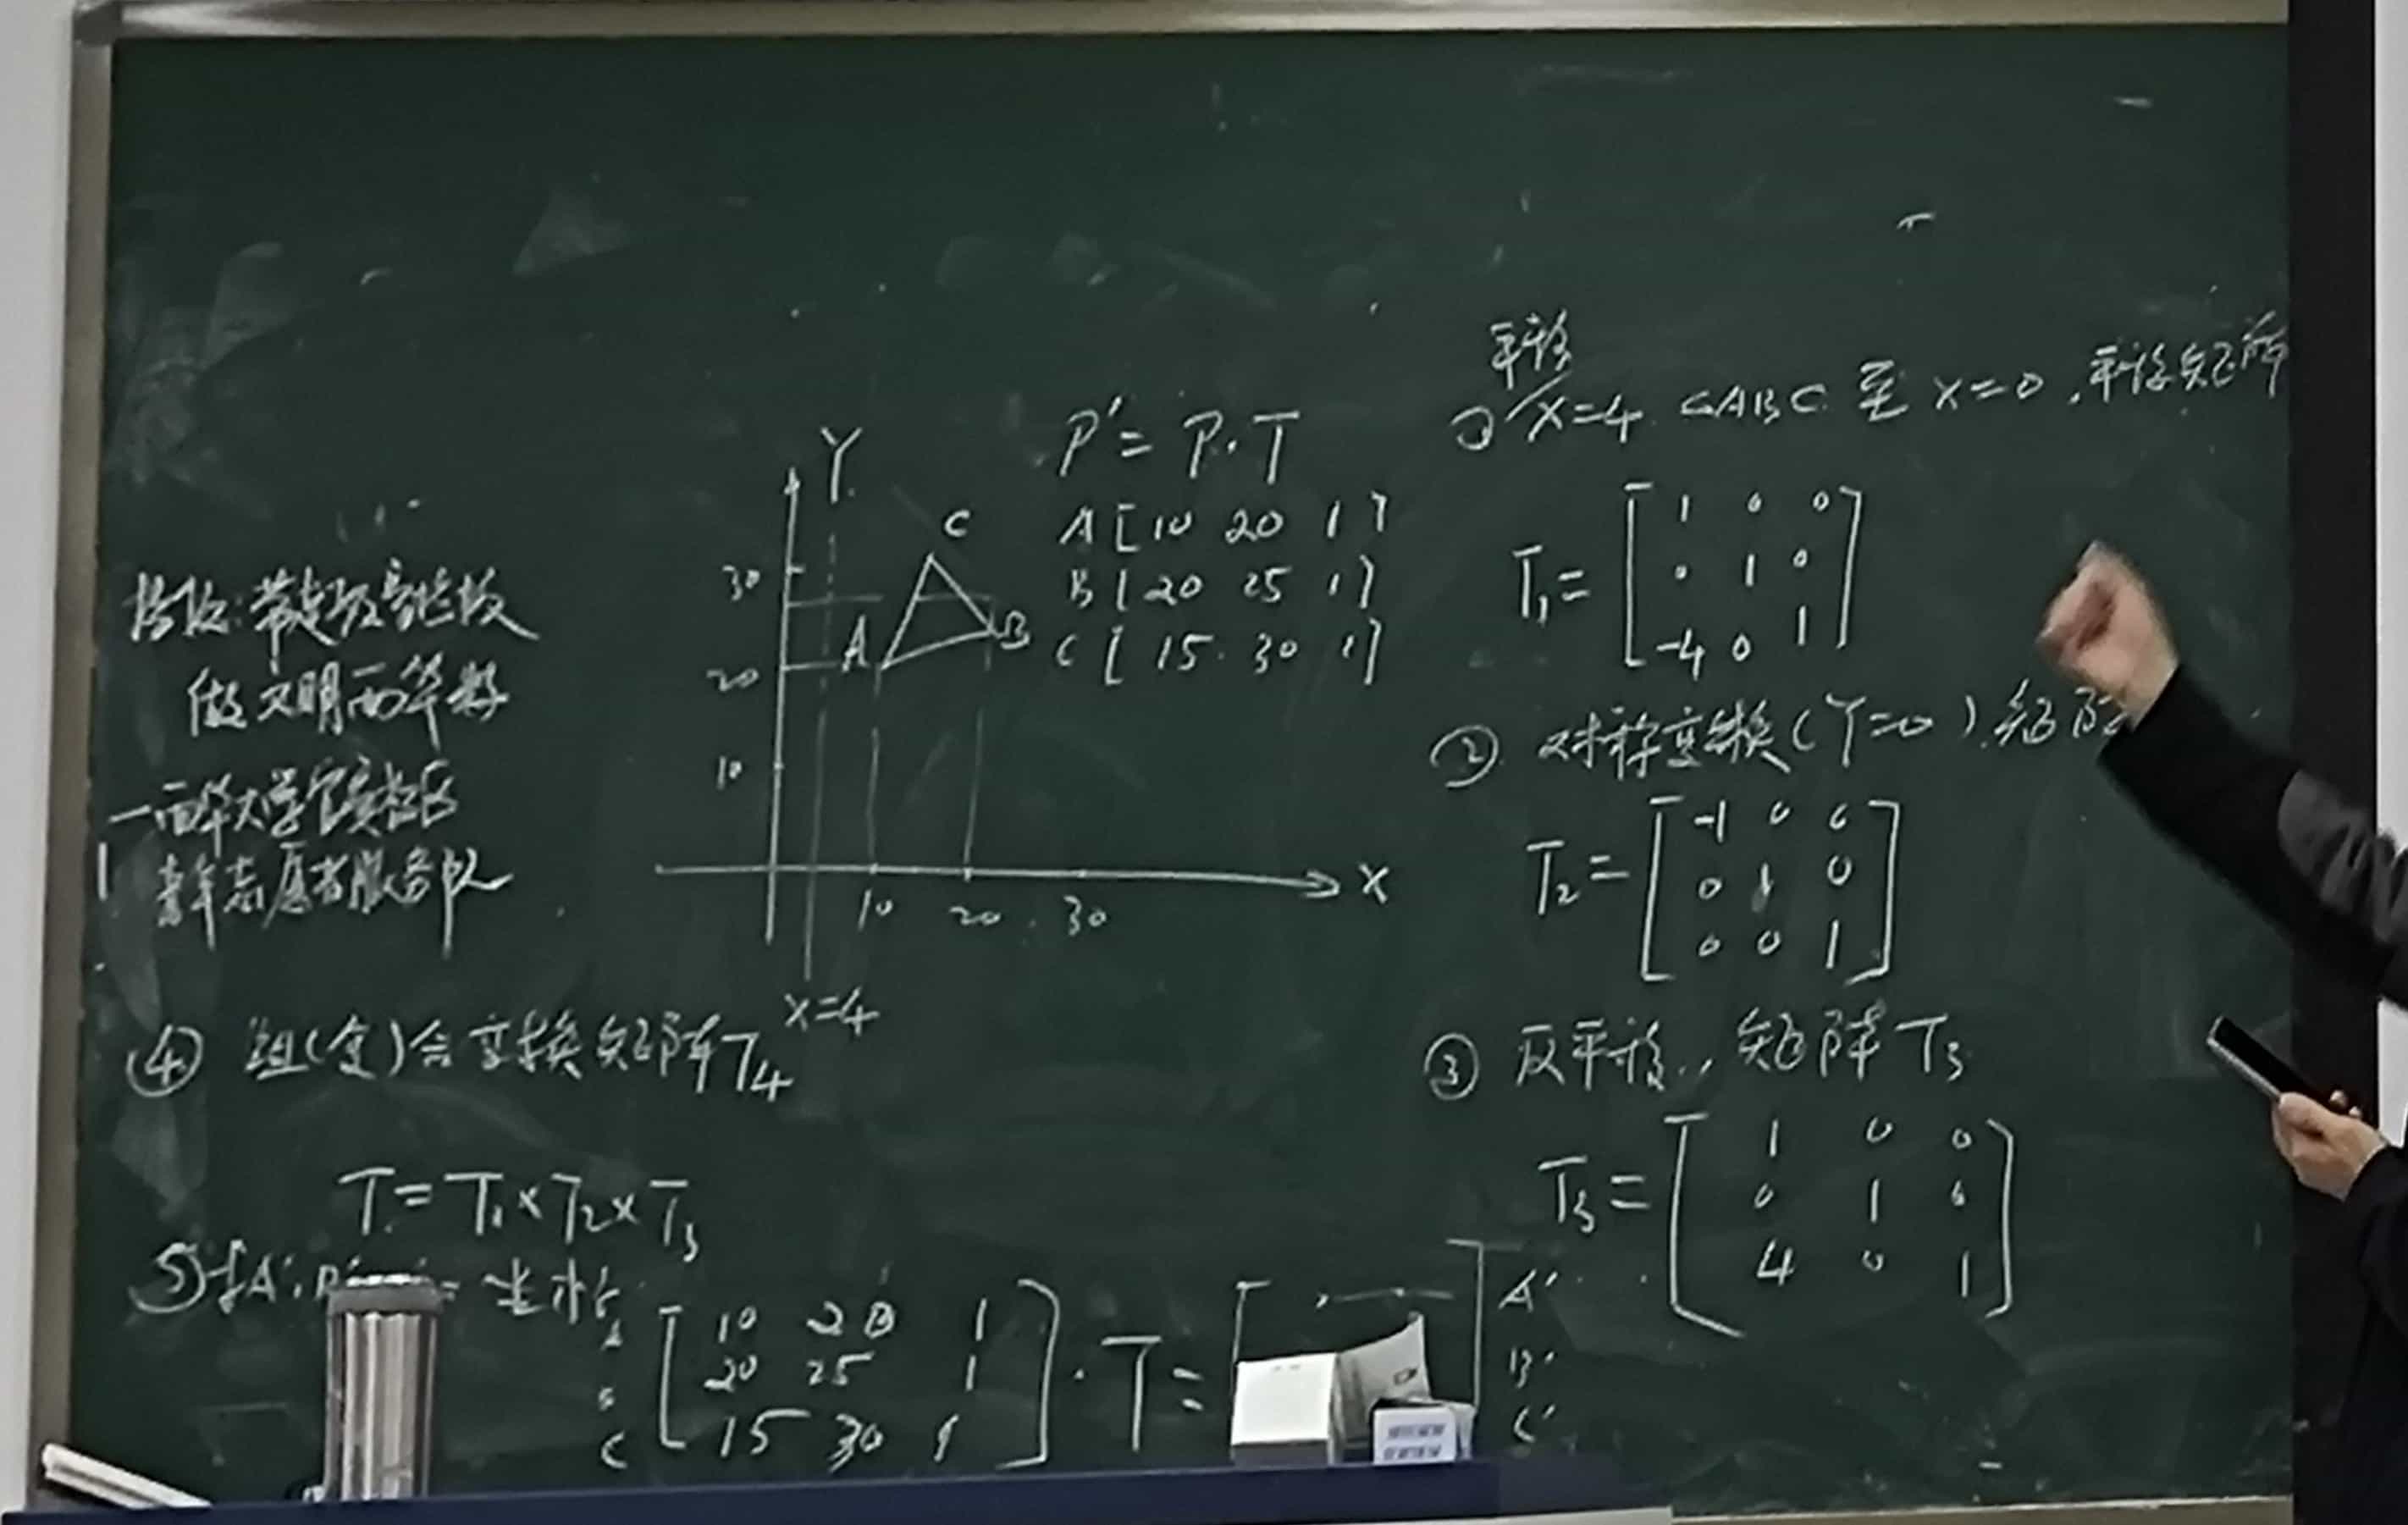 做文明西华人
一西华大学宜宾校区
青年志愿者服务队
Y
C
30
A
B
20
10
X
10 20 30
x=4
P'= P·T
A [10 20 1]
B [20 25 1]
C [15 30 1]
平移
① x=4 △ABC 至 x=0,平移矩阵
T1= [
1 0 0
0 1 0
-4 0 1
]
② 对称变换(Y=0)矩阵
T2= [
-1 0 0
0 1 0
0 0 1
]
③ 反平移,矩阵 T3
T3= [
1 0 0
0 1 0
4 0 1
]
④ 组(复)合变换矩阵T4
T=T1×T2×T3
⑤ 求A',B' 坐标
A [ 10 20 1
B 20 25 1
C 15 30 1 ] · T= [ ] A'
B'
C'